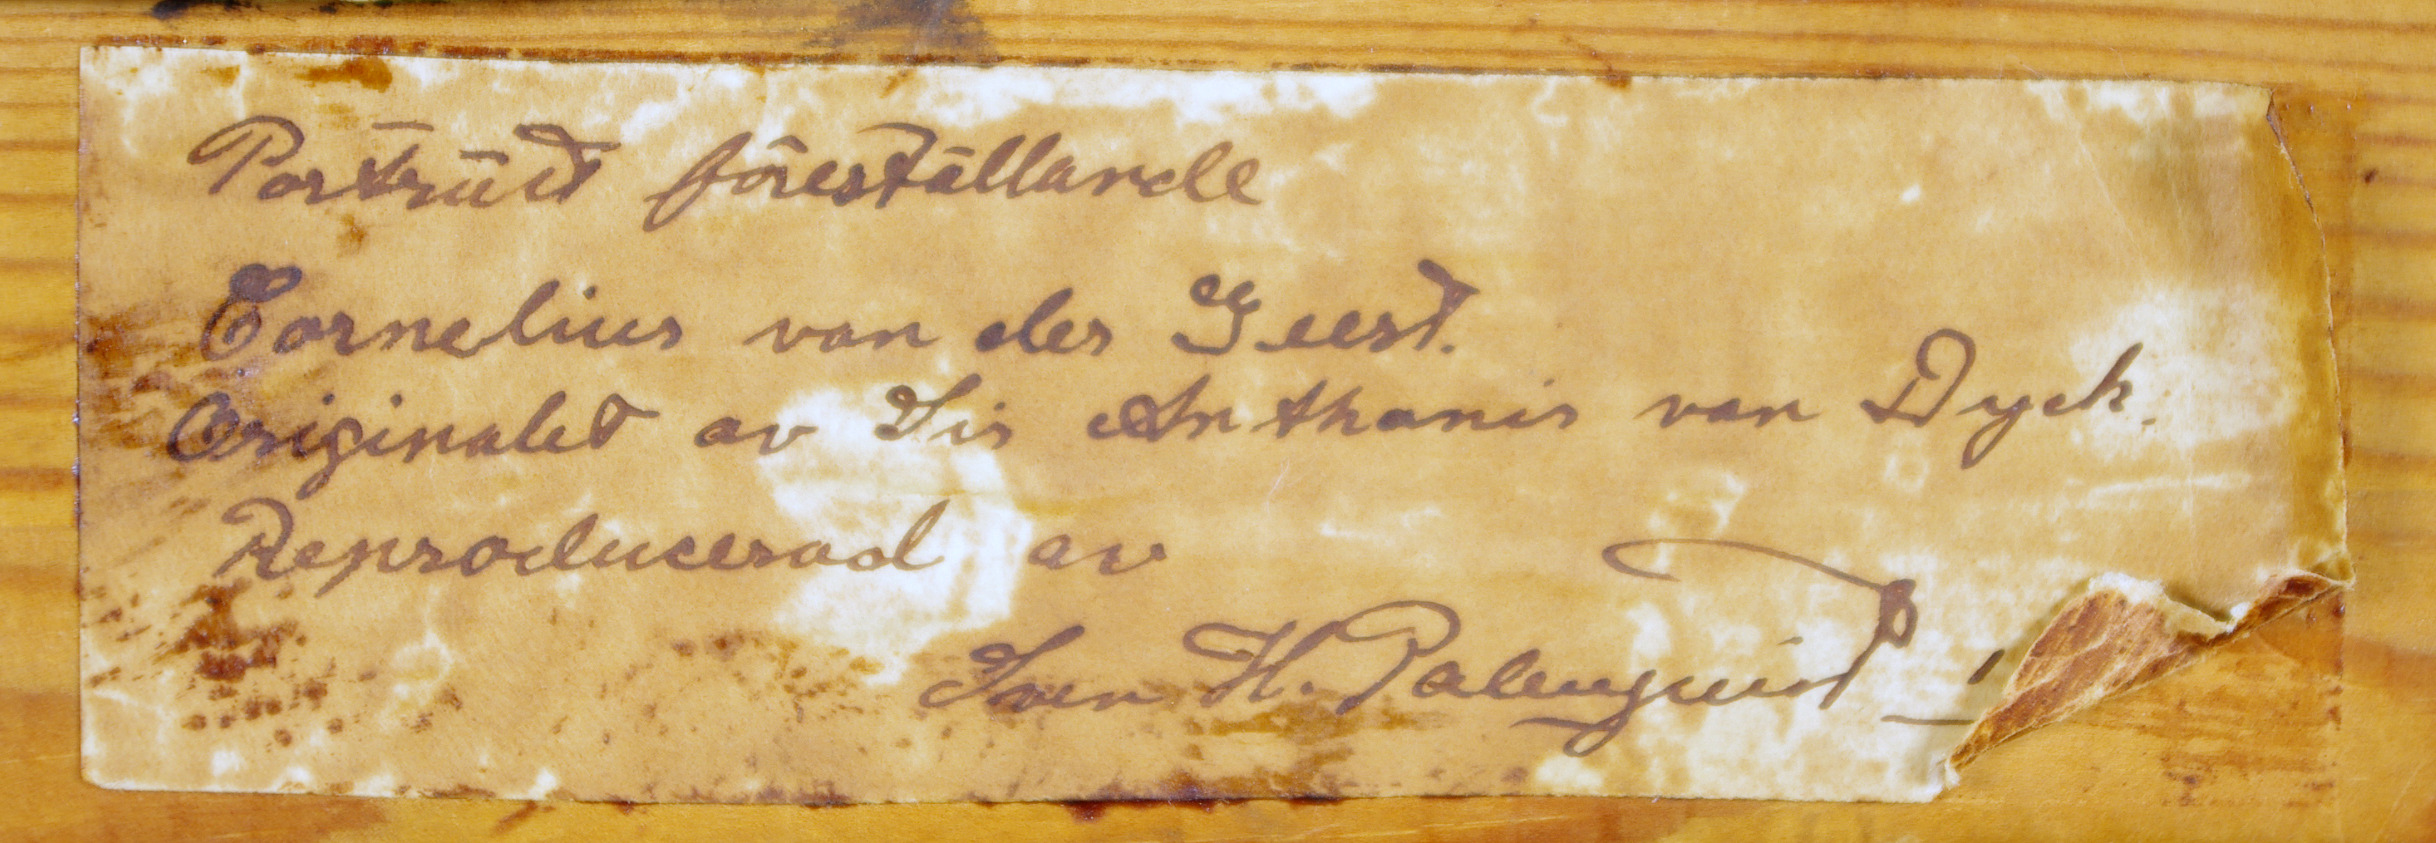 Porträtt föreställande
Cornelius van der Geest.
Originalet av Sir Anthonis van Dyck.
Reproducerad av
Sven H.